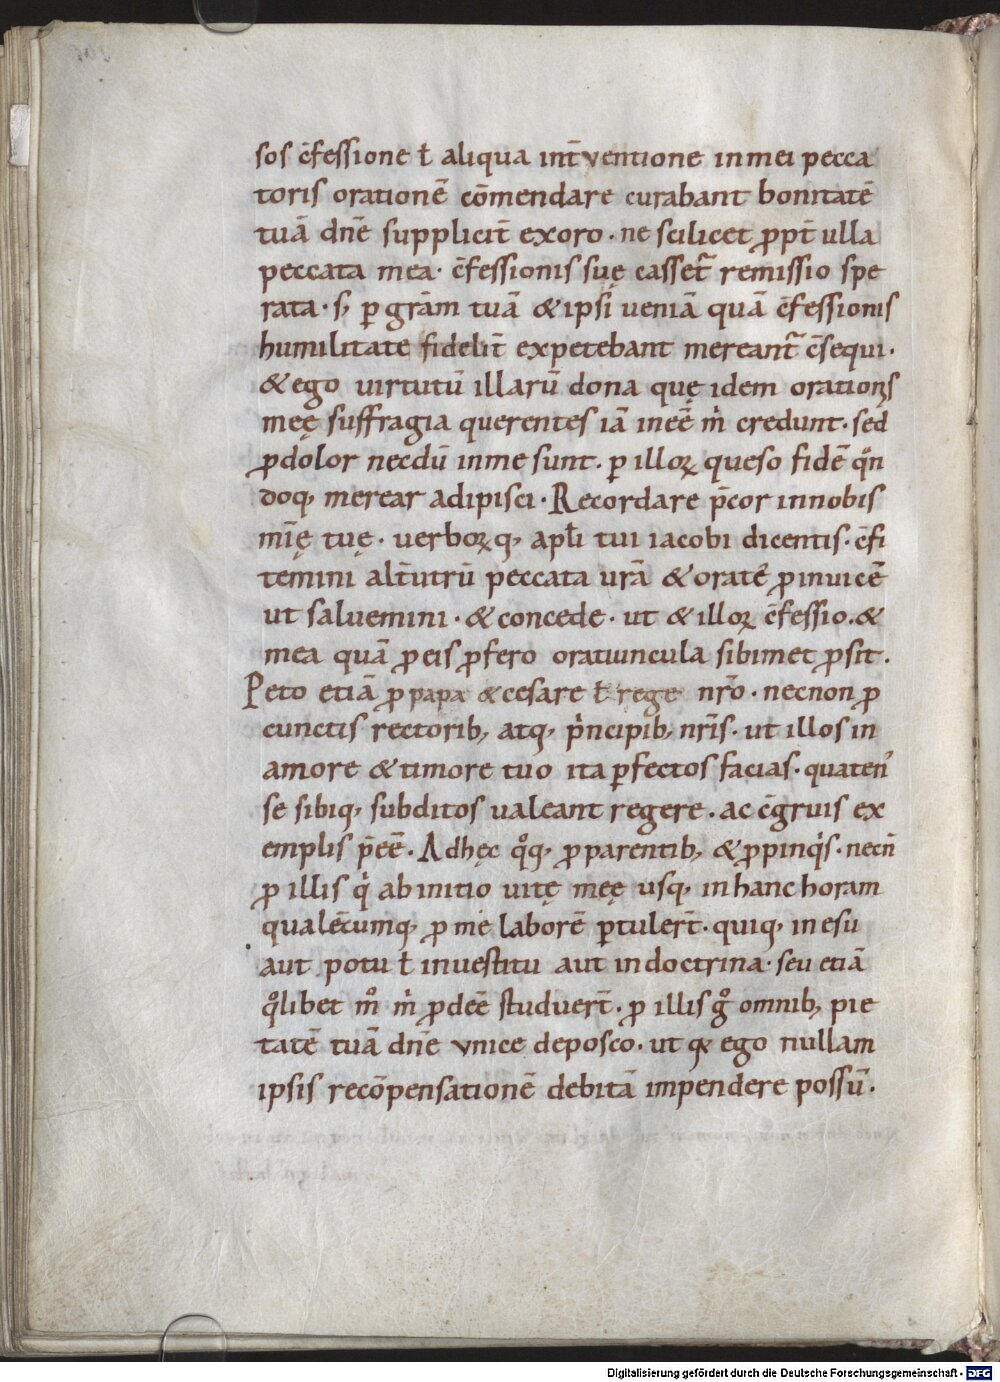 sos c̄fessione ł aliqua int̄ventione inmei pecca
toris orationē cōmendare curabant bonitatē
tuā dn̄e supplicit̄ exoro · ne scilicet ꝓpt̄ ulla
peccata mea · c̄fessionis suę cassēt remissio spe
rata · s, ꝑ gr̄am tuā & ipsi veniā quā c̄fessionis
humilitate fidelit̄ expetebant mereant᷑ c̄sequi ·
& ego virtutū illarū dona quę idem orationis
meę suffragia querentes iā ineē m̍ credunt · sed
ꝓdolor necdū inme sunt · ꝑ illoꝝ queso fidē qn̄
doq, merear adipisci · Recordare p̄cor innobis
mīę tuę · verboꝝq, apl̄i tui iacobi dicentis · c̄fi
temini alt̄utrū peccata vr̄a & oratē ꝓinuicē
ut saluemini · & concede · ut & illoꝝ c̄fessio · &
mea quā ꝓeis ꝓfero oratiuncula sibimet ꝓsit ·
Peto etiā ꝓ papa & cesare ł rege nr̄o · necnon ꝓ
cunctis rectorib, atq, p̍ncipib, nr̄is · ut illos in
amore & timore tuo ita ꝑfectos facias · quaten᾿
se sibiq, subditos valeant regere · ac c̄gruis ex
emplis p̄eē · Adhęc qͦq, ꝓparentib, & ꝓpinq̍s · necn̄
ꝓ illis q̍ abinitio vitę meę usq, inhanc horam
qualēcumq, ꝓ me laborē ꝑtulert̄ · quiq, inesu
aut potu ł inuestitu aut indoctrina · seu etiā
qͦlibet mͦ m̍ ꝓdeē studuert̄ · ꝓ illis gͦ omnib, pie
tatē tuā dn̄e vnice deposco · ut qꝫ ego nullam
ipsis recōpensationē debitā impendere possū ·
Digitalisierung gefördert durch die Deutsche Forschungsgemeinschaft - DFG